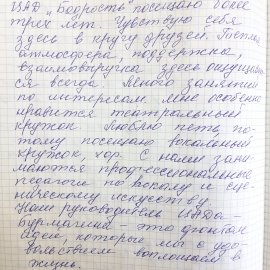 "Бодрость" посещаю более
трех лет. Чувствую себя
здесь в кругу друзей. Теплая
атмосфера, поддержка,
взаимовыручка здесь ощущает-
ся всегда. Много занятий
по интересам. Мне особенно
нравится театральный
кружок. Люблю петь, по-
тому посещаю вокальный
кружок, хор. С нами зани-
маются профессиональные
педагоги по вокалу и сце-
ническому искусству.
Наш руководитель
Бурмагина - это фонтан
идей, которые мы с удо-
вольствием воплощаем в
жизнь.